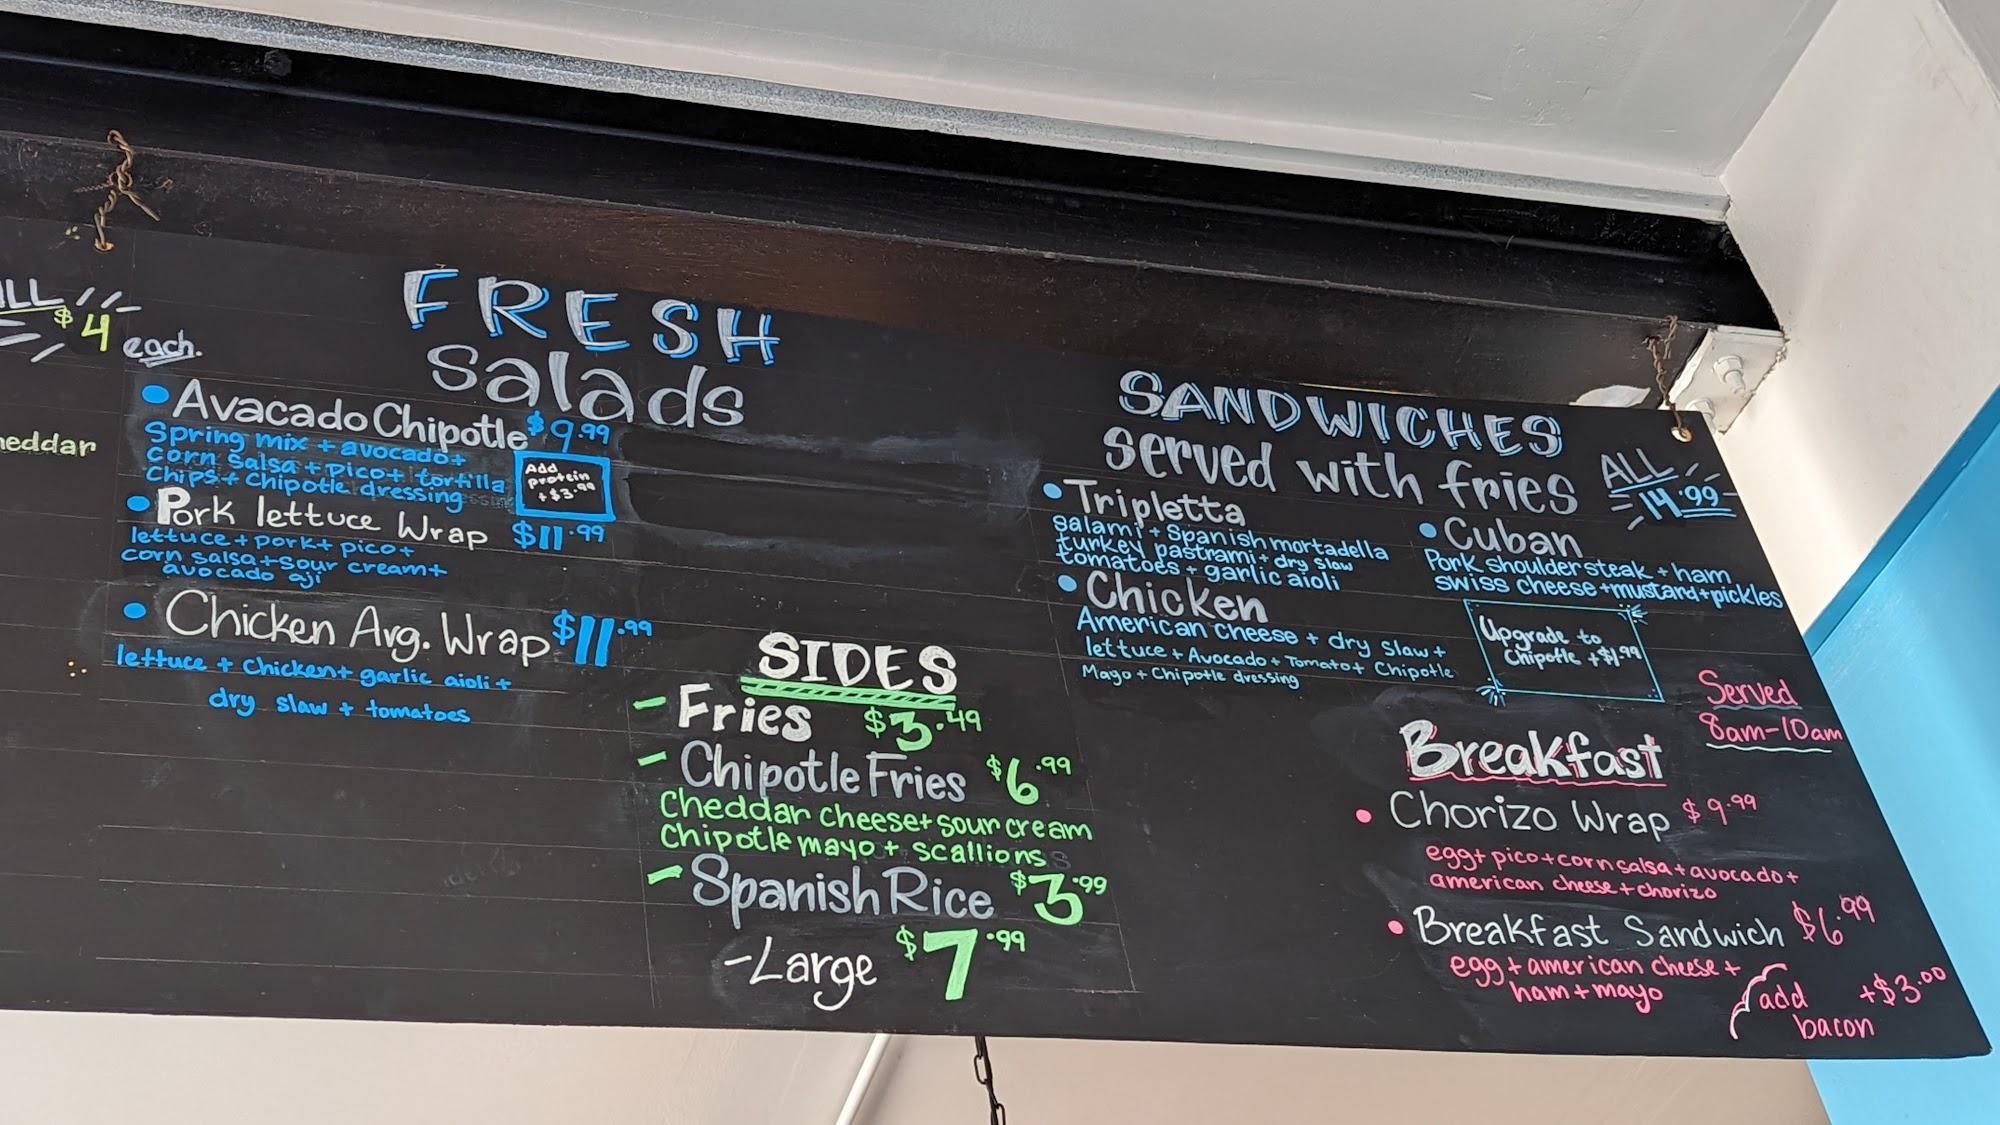 ALL
$4 each.
heddar
FRESH
Salads
Avacado Chipotle $9.99
Spring mix + avocado +
corn salsa + pico + tortilla
Chips + Chipotle dressing
Add
protein
+ $3.99
Pork lettuce Wrap $11.99
lettuce + pork + pico +
corn salsa + sour cream +
avocado aji
Chicken Arg. Wrap $11.99
lettuce + chicken + garlic aioli +
dry slaw + tomatoes
SIDES
- Fries $3.49
- Chipotle Fries $6.99
Cheddar cheese + sour cream
Chipotle mayo + scallions
- Spanish Rice $3.99
- Large $7.99
SANDWICHES
served with fries
ALL
14.99
Tripletta
salami + Spanish mortadella
turkey pastrami + dry slaw
tomatoes + garlic aioli
Chicken
American cheese + dry slaw +
lettuce + Avocado + Tomato + Chipotle
Mayo + Chipotle dressing
Cuban
Pork shoulder steak + ham
swiss cheese + mustard + pickles
Upgrade to
Chipotle + $1.99
Served
8am-10am
Breakfast
Chorizo Wrap $9.99
egg + pico + corn salsa + avocado +
american cheese + chorizo
Breakfast Sandwich $6.99
egg + american cheese +
ham + mayo
add +$3.00
bacon